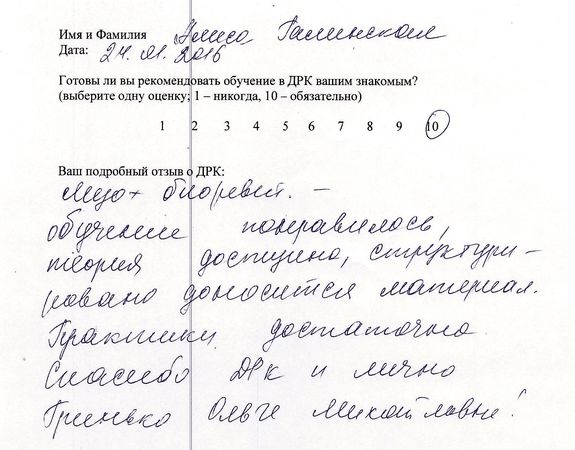 Имя и Фамилия Алиса Галинская
Дата: 24.01.2016
Готовы ли вы рекомендовать обучение в ДРК вашим знакомым?
(выберите одну оценку; 1 – никогда, 10 – обязательно)
1 2 3 4 5 6 7 8 9 10
Ваш подробный отзыв о ДРК:
Мезо + биоревит. –
обучение понравилось,
теория доступно, структури-
ровано доносится материал.
Практики достаточно
Спасибо ДРК и лично
Гринько Ольге Михайловне!